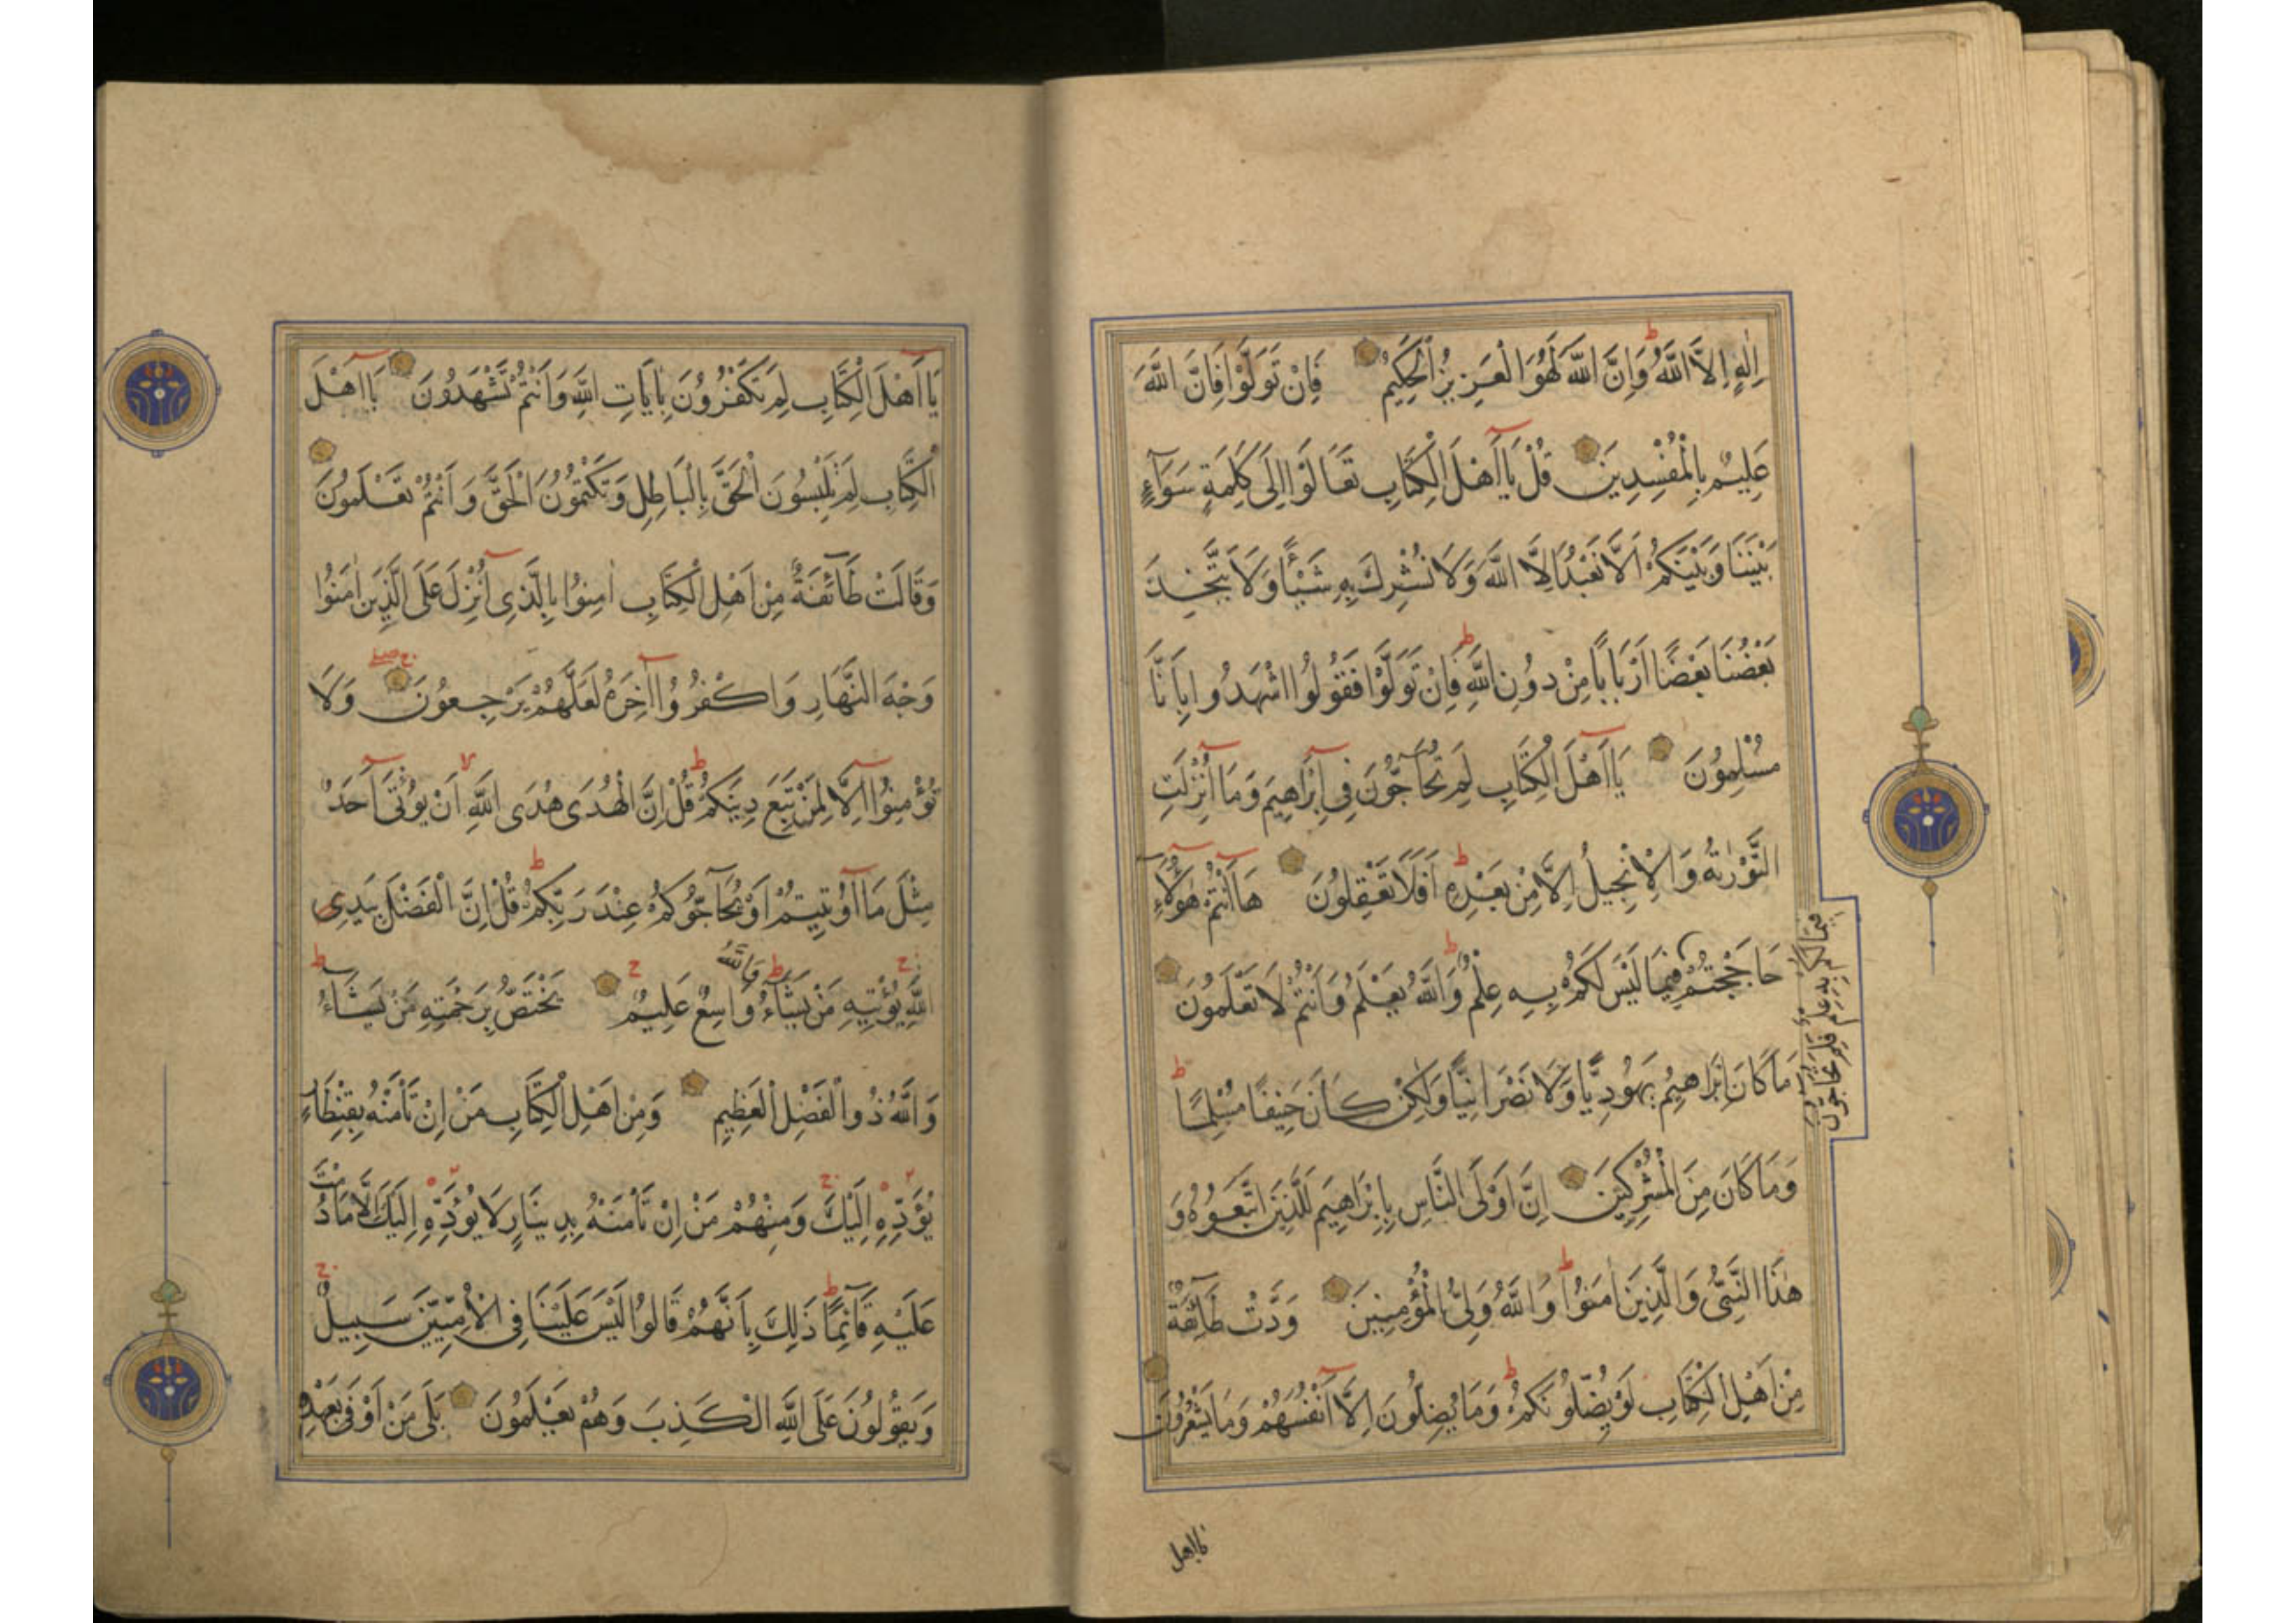 اِلٰهٍ اِلَّا اللَّهُ وَاِنَّ اللَّهَ لَهُوَ الْعَزِيزُ الْحَكِيمُ فَاِنْ تَوَلَّوْا فَاِنَّ اللَّهَ
عَلِيمٌ بِالْمُفْسِدِينَ قُلْ يَا اَهْلَ الْكِتَابِ تَعَالَوْا اِلَى كَلِمَةٍ سَوَاءٍ
بَيْنَنَا وَبَيْنَكُمْ اَلَّا نَعْبُدَ اِلَّا اللَّهَ وَلَا نُشْرِكَ بِهِ شَيْئًا وَلَا يَتَّخِذَ
بَعْضُنَا بَعْضًا اَرْبَابًا مِنْ دُونِ اللَّهِ فَاِنْ تَوَلَّوْا فَقُولُوا اشْهَدُوا بِاَنَّا
مُسْلِمُونَ يَا اَهْلَ الْكِتَابِ لِمَ تُحَاجُّونَ فِي اِبْرَاهِيمَ وَمَا اُنْزِلَتِ
التَّوْرٰيةُ وَالْاِنْجِيلُ اِلَّا مِنْ بَعْدِهِ اَفَلَا تَعْقِلُونَ هَا اَنْتُمْ هٰؤُلَاءِ
حَاجَجْتُمْ فِيمَا لَيْسَ لَكُمْ بِهِ عِلْمٌ وَاللَّهُ يَعْلَمُ وَاَنْتُمْ لَا تَعْلَمُونَ
فِيمَا لَكُمْ بِهِ عِلْمٌ فَلِمَ تُحَاجُّونَ
مَا كَانَ اِبْرَاهِيمُ يَهُودِيًّا وَلَا نَصْرَانِيًّا وَلٰكِنْ كَانَ حَنِيفًا مُسْلِمًا
وَمَا كَانَ مِنَ الْمُشْرِكِينَ اِنَّ اَوْلَى النَّاسِ بِاِبْرَاهِيمَ لَلَّذِينَ اتَّبَعُوهُ وَ
هٰذَا النَّبِيُّ وَالَّذِينَ اٰمَنُوا وَاللَّهُ وَلِيُّ الْمُؤْمِنِينَ وَدَّتْ طَائِفَةٌ
مِنْ اَهْلِ الْكِتَابِ لَوْ يُضِلُّونَكُمْ وَمَا يُضِلُّونَ اِلَّا اَنْفُسَهُمْ وَمَا يَشْعُرُونَ
يا اهل
يَا اَهْلَ الْكِتَابِ لِمَ تَكْفُرُونَ بِاٰيَاتِ اللَّهِ وَاَنْتُمْ تَشْهَدُونَ يَا اَهْلَ
الْكِتَابِ لِمَ تَلْبِسُونَ الْحَقَّ بِالْبَاطِلِ وَتَكْتُمُونَ الْحَقَّ وَاَنْتُمْ تَعْلَمُونَ
وَقَالَتْ طَائِفَةٌ مِنْ اَهْلِ الْكِتَابِ اٰمِنُوا بِالَّذِي اُنْزِلَ عَلَى الَّذِينَ اٰمَنُوا
وَجْهَ النَّهَارِ وَاكْفُرُوا اٰخِرَهُ لَعَلَّهُمْ يَرْجِعُونَ وَلَا
تُؤْمِنُوا اِلَّا لِمَنْ تَبِعَ دِينَكُمْ قُلْ اِنَّ الْهُدَى هُدَى اللَّهِ اَنْ يُؤْتَى اَحَدٌ
مِثْلَ مَا اُوتِيتُمْ اَوْ يُحَاجُّوكُمْ عِنْدَ رَبِّكُمْ قُلْ اِنَّ الْفَضْلَ بِيَدِ
اللَّهِ يُؤْتِيهِ مَنْ يَشَاءُ وَاللَّهُ وَاسِعٌ عَلِيمٌ يَخْتَصُّ بِرَحْمَتِهِ مَنْ يَشَاءُ
وَاللَّهُ ذُو الْفَضْلِ الْعَظِيمِ وَمِنْ اَهْلِ الْكِتَابِ مَنْ اِنْ تَأْمَنْهُ بِقِنْطَارٍ
يُؤَدِّهِ اِلَيْكَ وَمِنْهُمْ مَنْ اِنْ تَأْمَنْهُ بِدِينَارٍ لَا يُؤَدِّهِ اِلَيْكَ اِلَّا مَا دُمْتَ
عَلَيْهِ قَائِمًا ذٰلِكَ بِاَنَّهُمْ قَالُوا لَيْسَ عَلَيْنَا فِي الْاُمِّيِّينَ سَبِيلٌ
وَيَقُولُونَ عَلَى اللَّهِ الْكَذِبَ وَهُمْ يَعْلَمُونَ بَلَى مَنْ اَوْفَى بِعَهْدِهِ